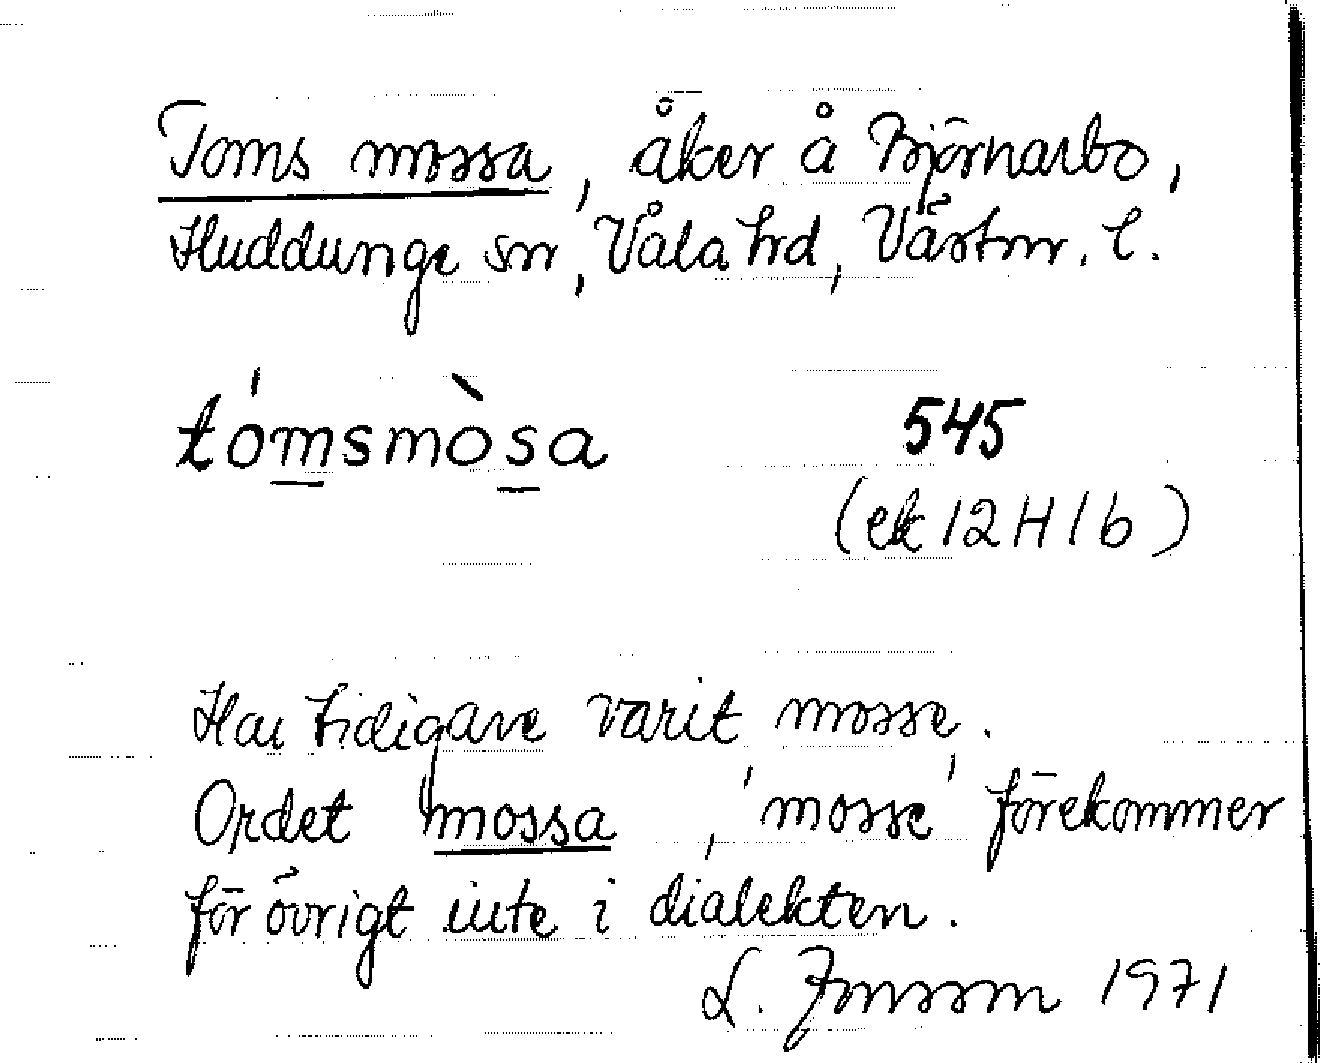 Toms mossa, åker å Björnarbo,
Huddunge sn, Våla hd, Västm. l.
tómsmòsa
545
(ek 12 H 1 b)
Har tidigare varit mosse.
Ordet mossa, 'mosse' förekommer
för övrigt inte i dialekten.
L. Jonsson 1971